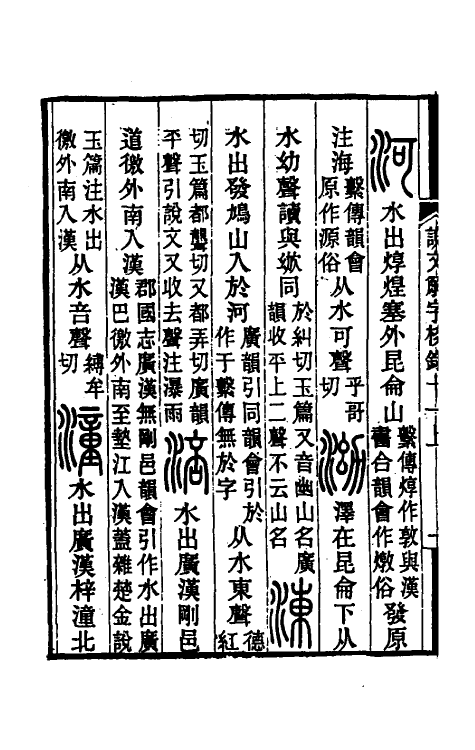 說文解字校錄十一上
一
河水出焞煌塞外昆侖山繫傳焞作敦與漢書合韻會作燉俗發原
注海繫傳韻會原作源俗从水可聲乎哥切泑澤在昆侖下从
水幼聲讀與同於糾切玉篇又音幽山名廣韻收平上二聲不云山名涷
水出發鳩山入於河廣韻引同韻會引於作于繫傳無於字从水東聲德紅
切玉篇都聾切又都弄切廣韻平聲引說文又收去聲注瀑雨涪水出廣漢剛邑
道徼外南入漢郡國志廣漢無剛邑韻會引作水出廣漢巴徼外南至墊江入漢蓋雜楚金說
玉篇注水出徼外南入漢从水音聲縛牟切潼水出廣漢梓潼北